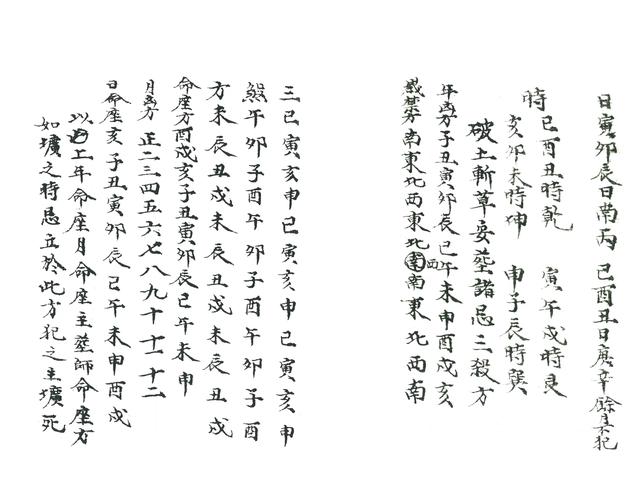 日寅卯辰日南丙 己酉丑日庚辛餘日不犯
時巳酉丑時乾 寅午戌時艮
亥卯未時坤 申子辰時巽
破土斬草安塟諸忌三殺方
年內方子丑寅卯辰巳午未申酉戌亥
歲禁方南東北西東北西南南東北西南
三巳寅亥申巳寅亥申巳寅亥申
煞午卯子酉午卯子酉午卯子酉
方未辰丑戌未辰丑戌未辰丑戌
命座方酉戌亥子丑寅卯辰巳午未申
月方正二三四五六七八九十十一十二
日命座亥子丑寅卯辰巳午未申酉戌
以上年命座月命座主塟師命座方
如壙之時忌立於此方犯之主壙死